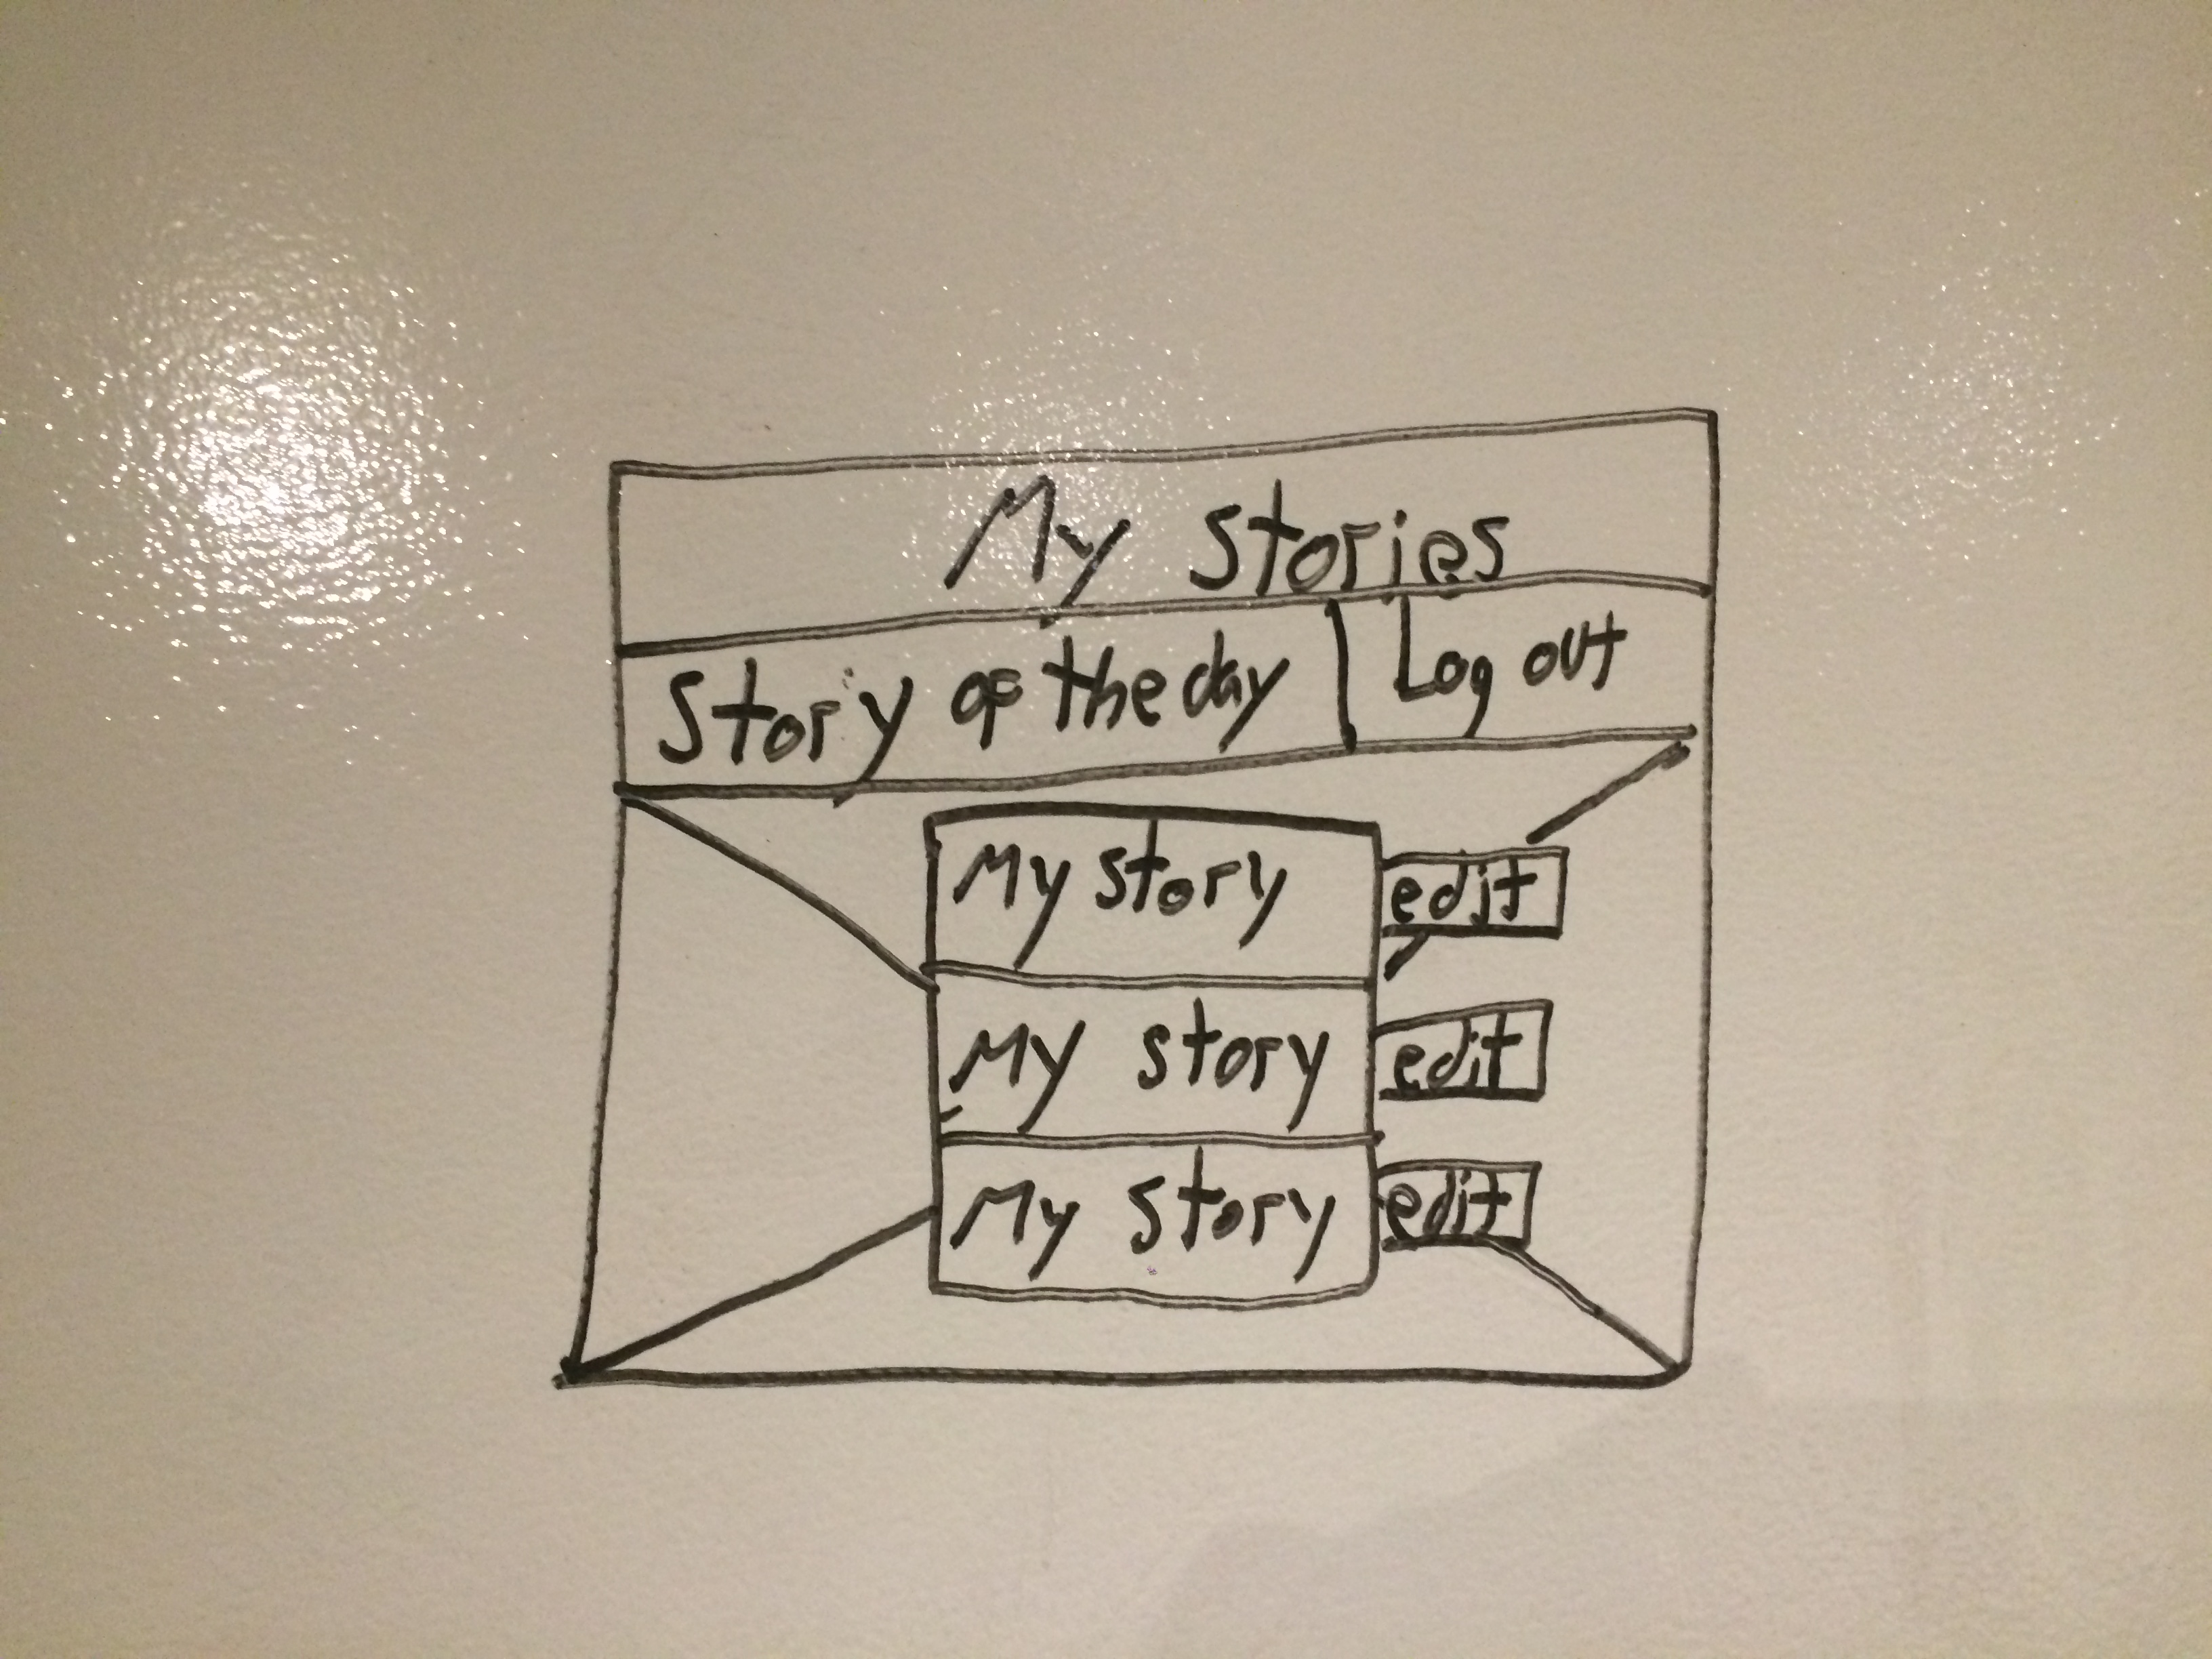 My Stories
Story of the day Log out
My story edit
My story edit
My story edit